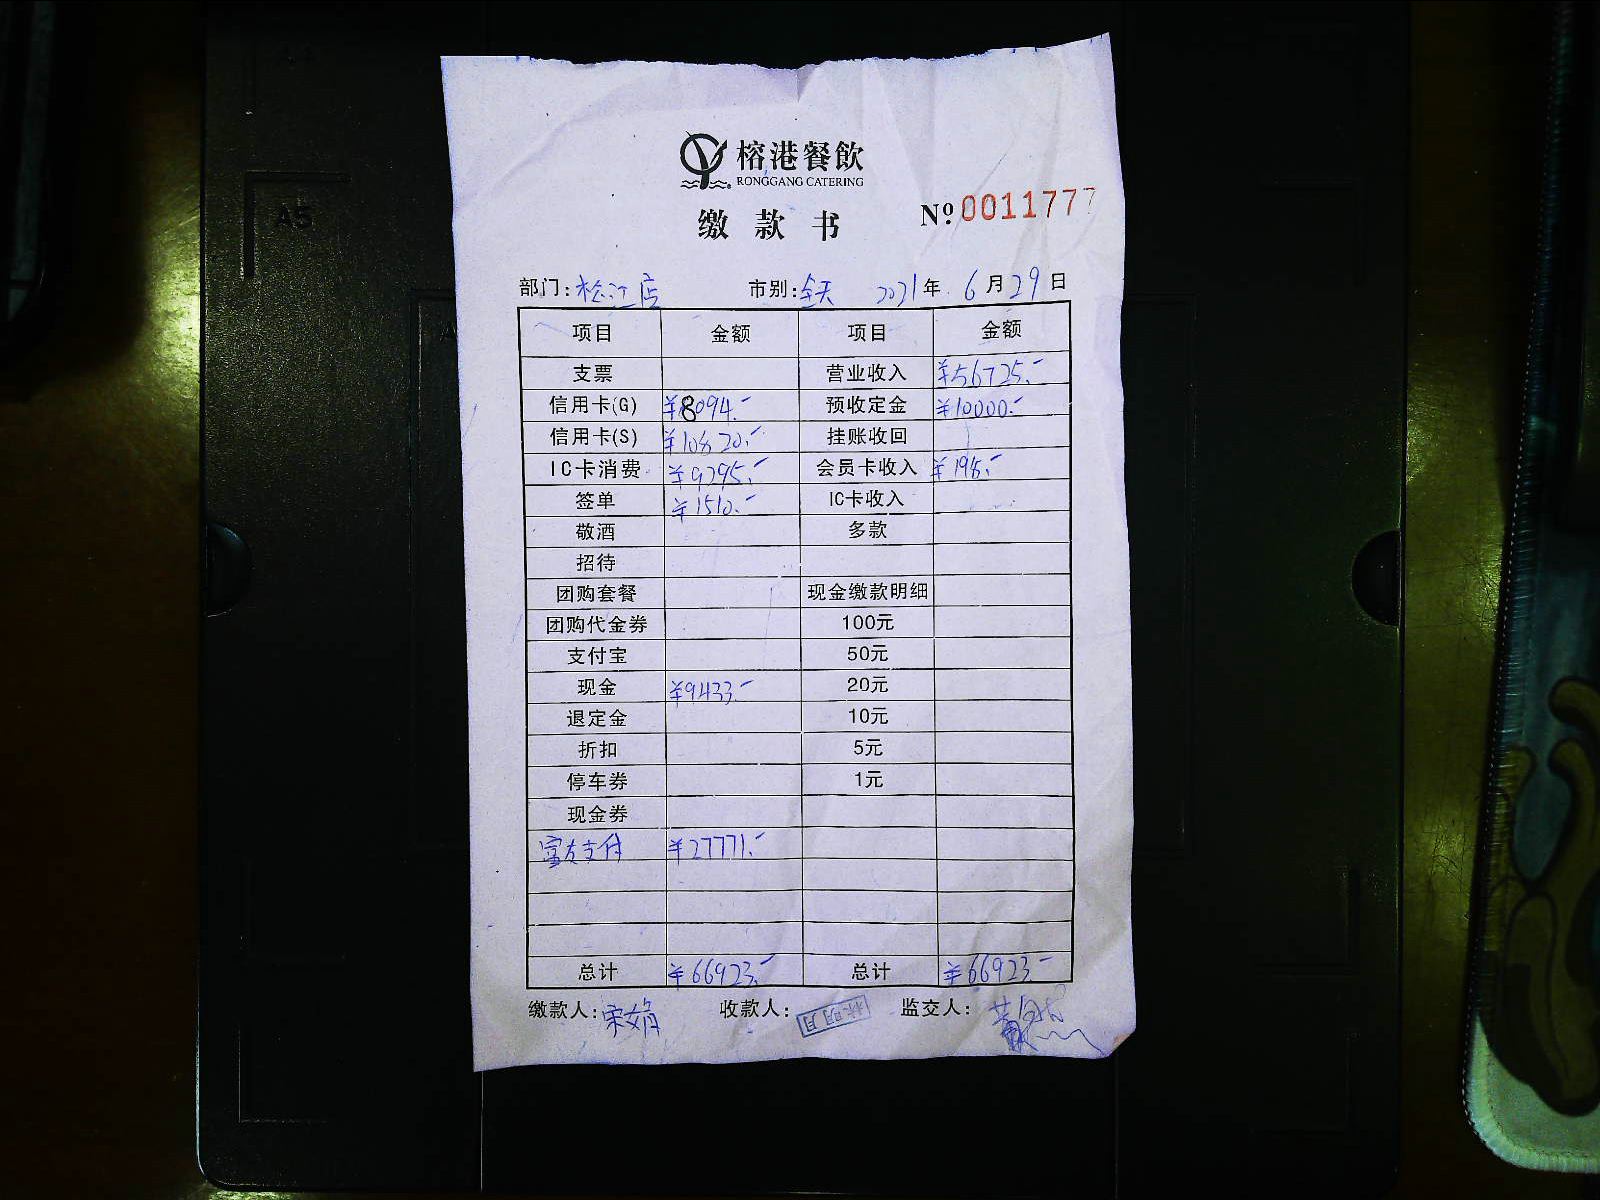 榕港餐飲
RONGGANG CATERING
缴款书
№ 0011777
部门: 松江店 市别: 全天 2021年 6月29日
项目 金额 项目 金额
支票 营业收入 ¥56725.-
信用卡(G) ¥8094.- 预收定金 ¥10000.-
信用卡(S) ¥10820.- 挂账收回
IC卡消费 ¥9295.- 会员卡收入 ¥198.-
签单 ¥1510.- IC卡收入
敬酒 多款
招待
团购套餐 现金缴款明细
团购代金券 100元
支付宝 50元
现金 ¥9433.- 20元
退定金 10元
折扣 5元
停车券 1元
现金券
富友支付 ¥27771.-
总计 ¥66923.- 总计 ¥66923.-
缴款人: 宋娟 收款人: 林明月 监交人:
A5